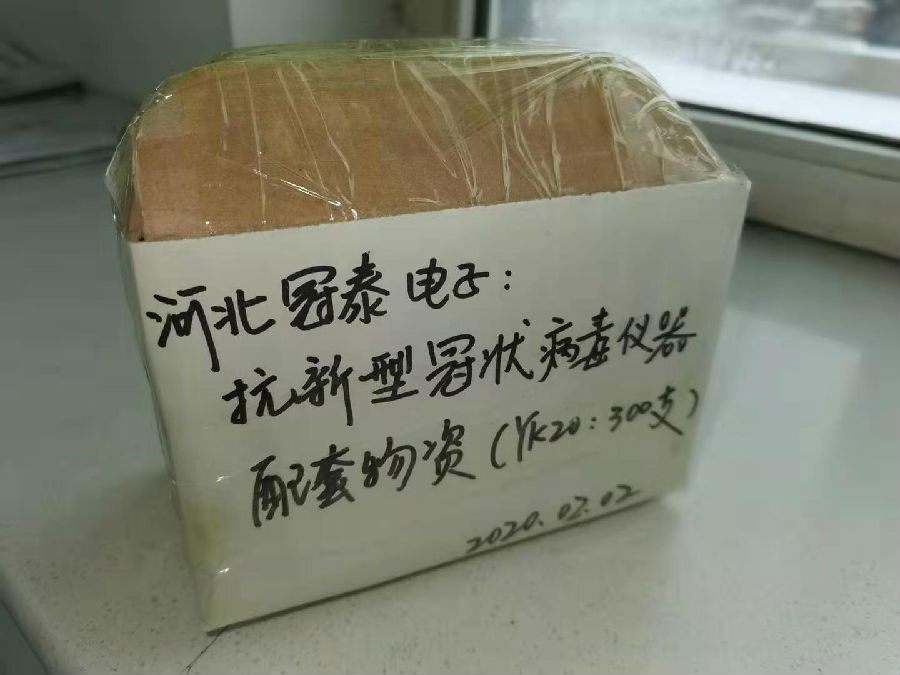 河北冠泰电子:
抗新型冠状病毒仪器
配套物资(YK20:300支)
2020.02.02